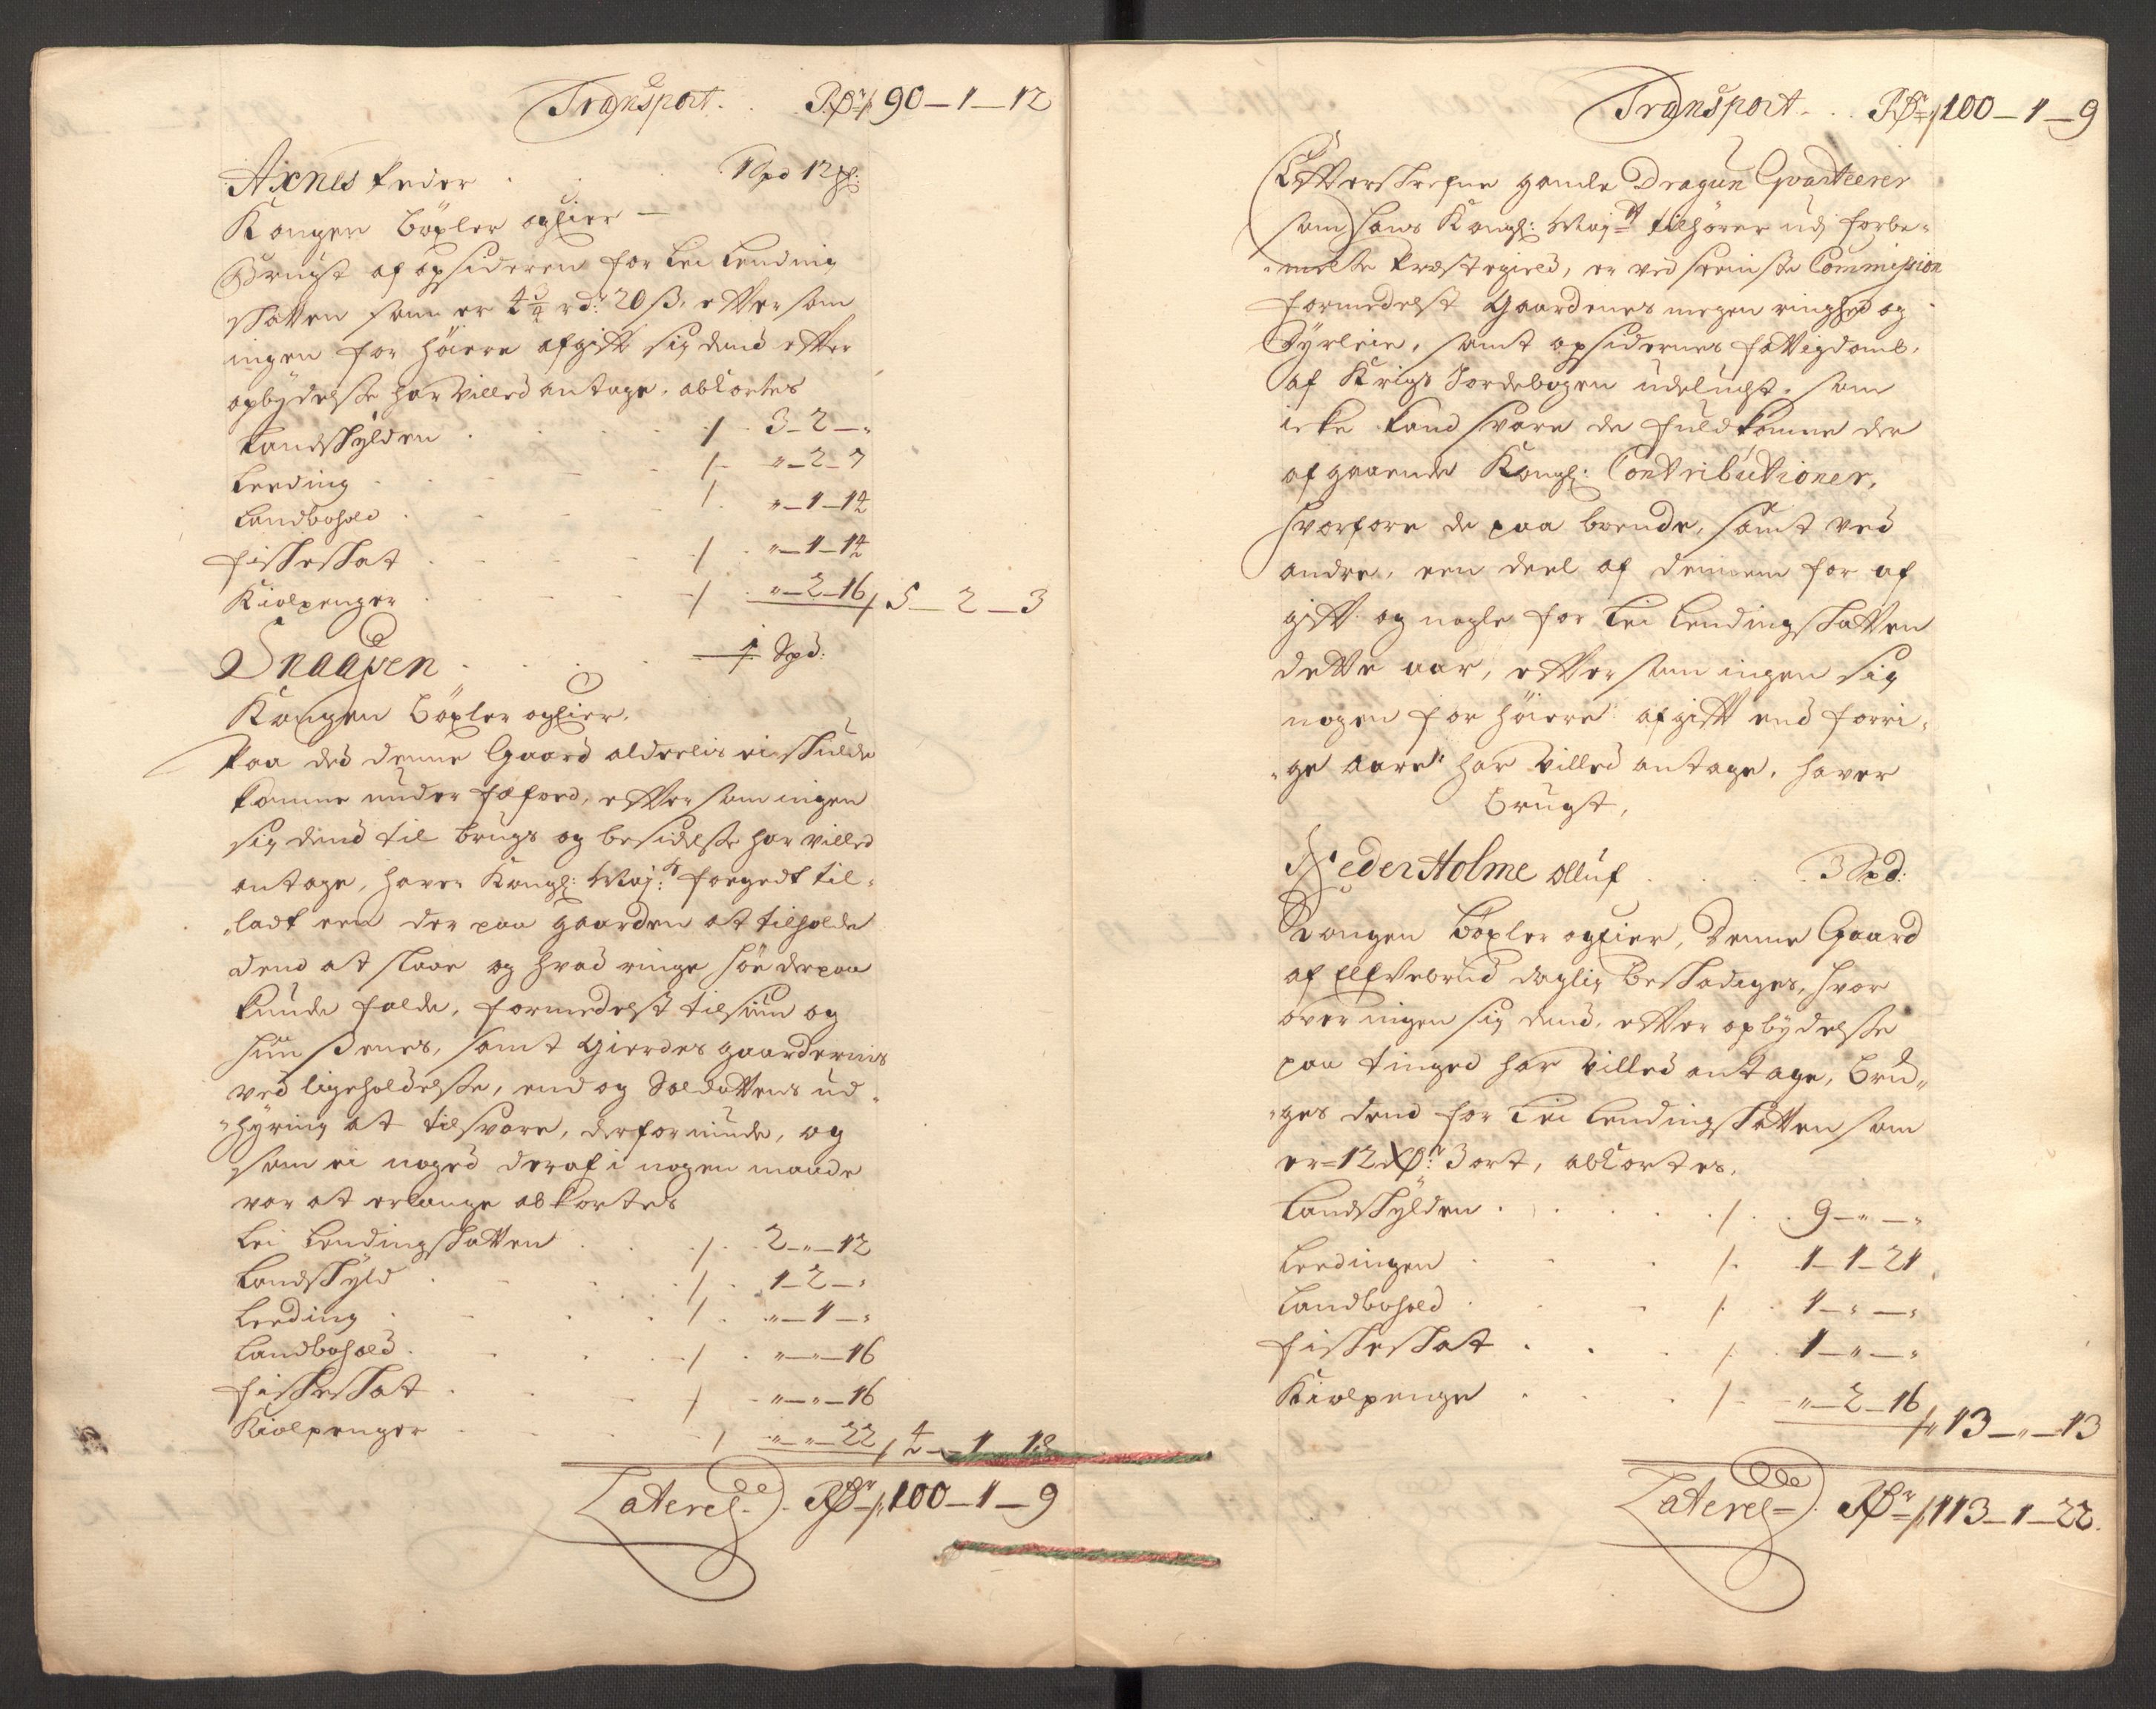 Transport. . Rdr/ 90-1-12
Axnes Peder . . 1 Spd 12 ℔:
Kongen böxler og eier —
Brugt af opsideren for Lei Lending
skatten som er 4¾ rd: 20 ß, efftersom
ingen for höiere afgifft sig dend effter
opbydelse har villed antage, abkortes
Landskylden . . . /. 3-2-"
Leeding . . . /. "-2-7
Landbohold . . . /. "-1-14
fiskeskat . . . /. "-1-14
Kiolpenger . . . /. "-2-16 / 5-2-3
Snaapen . . . 1 Spd:
Kongen böxler og eier,
Paa det denne Gaard alderlis ei skulde
komme under fæford, efftersom ingen
sig dend til brugs og besidelse har villed
antage, haver Kongl: Maj:ts foegedt til-
ladt een der paa gaarden at tilholde
dend at slaae og hvad ringe höe derpaa
kunde falde, formedelst tilsiun og
huusenes, samt gierdes gaardernis
ved ligeholdelse, end og Soldattens ud-
hyring at tilsvare, derforinde, og
som ei noged deraf i nogen maade
var at erlange abkortes
Lei Lendingskatten . . /. 2-"-12
Landskyld . . . /. 1-2-"
Leeding . . . /. "-1-"
Landbohold . . . /. "-"-16
fiskeskat . . . /. "-"-16
Kiolpenger . . . /. "-"-22 / 4-1-18
Lateres . Rdr/ 100-1-9
Transport . . Rdr/ 100-1-9
Effterskrefne gamle Dragun Qvarteerer
som hans Kongl: Maj:tt tilhörer udj forbe-
melte Præstegield, er ved seeniste Commission
formedelst Gaardenes megen ringhed og
Dyrleie, samt opsidernes fattigdomb,
af Krigs Jordebogen udelugt, som
icke kand svare de fuldkomne der
af gaaende Kongl: Contributioner,
hvorfore de paa boende, samt ved
andre, een deel af dennem for af
gifft og nogle for Lei Lendingskatten
dette aar, efftersom ingen sig
nogen for höiere afgifft end forri-
ge aare har villed antage, haver
brugt,
Neder Holme Olluf . . . 3 Spd:
Kongen böxler og eier, Denne Gaard
af Elfvebrud daglig beskadiges, hvor
over ingen sig dend, effter opbydelse
paa tinged har villed antage, bru-
ges dend for Lei Lendingskatten som
er 12 rdr: 3 ort, abkortes,
Landskylden . . . /. 9-"-"
Leedingen . . . /. 1-1-21
Landbohold . . . /. 1-"-"
fiskeskat . . . /. 1-"-"
Kiolpenge . . . /. "-2-16 / 13-"-13
Lateres . Rdr/ 113-1-22.